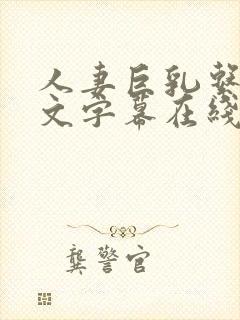 人妻巨乳
文字幕在线
龚警官